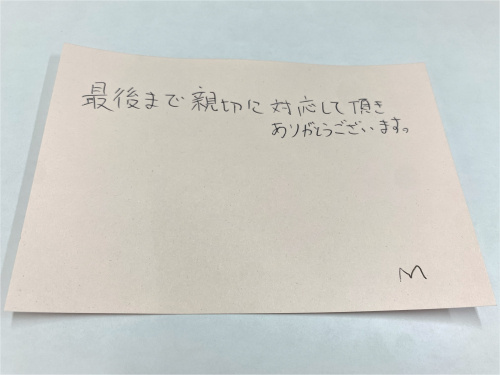 最後まで親切に対応して頂き
ありがとうございます。
M